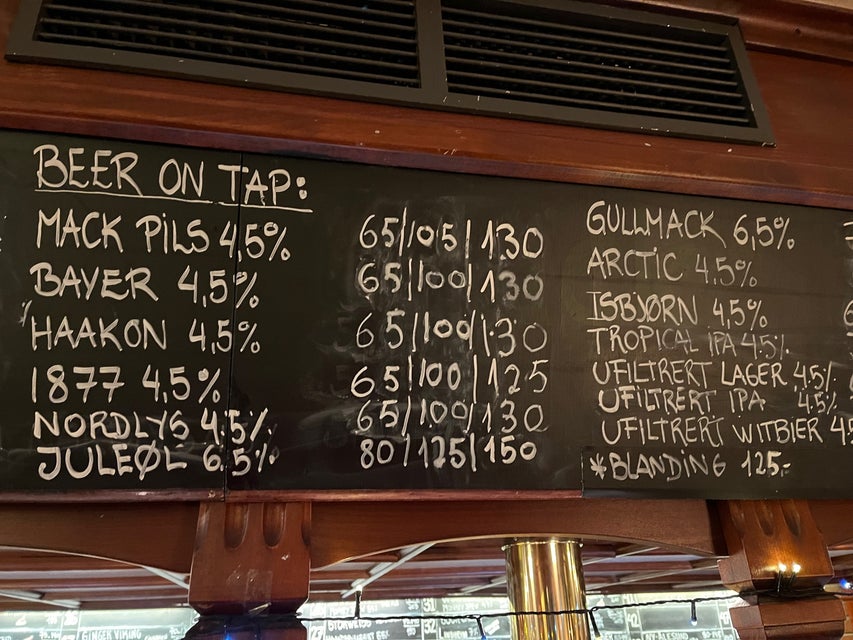 BEER ON TAP:
MACK PILS 4,5% 65/105/130
BAYER 4,5% 65/100/130
HAAKON 4,5% 65/100/130
1877 4,5% 65/100/125
NORDLYS 4.5% 65/100/130
JULEØL 6.5% 80/125/150
GULLMACK 6,5%
ARCTIC 4,5%
ISBJØRN 4,5%
TROPICAL IPA 4.5%
UFILTRERT LAGER 4.5%
UFILTRERT IPA 4.5%
UFILTRERT WITBIER
*BLANDING 125,-
GINGER VIKING